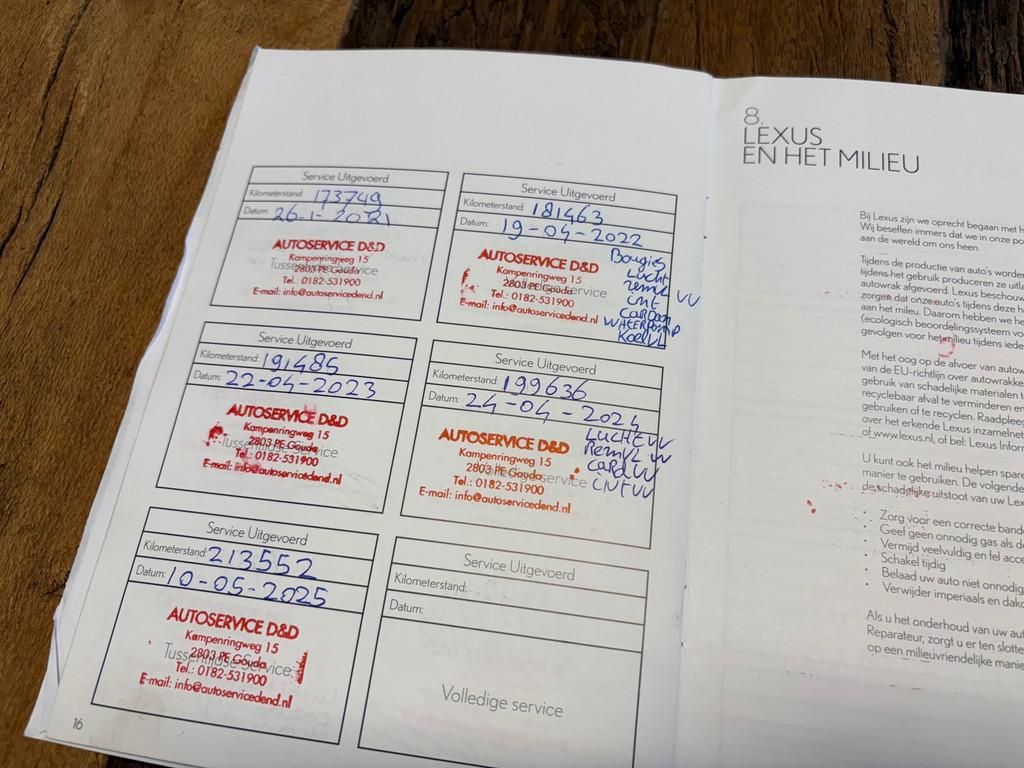 Service Uitgevoerd
Kilometerstand: 173749
Datum: 26-1-2021
AUTOSERVICE D&D
Kampenringweg 15
2803 PE Gouda
Tussentijdse service
Tel.: 0182-531900
E-mail: info@autoservicedend.nl
Service Uitgevoerd
Kilometerstand: 181463
Datum: 19-04-2022
AUTOSERVICE D&D
Kampenringweg 15
2803 PE Gouda
Volledige service
Tel.: 0182-531900
E-mail: info@autoservicedend.nl
Bougies
Lucht
remvl vv
int
cardan
waterpomp
Koelvl
Service Uitgevoerd
Kilometerstand: 191485
Datum: 22-04-2023
AUTOSERVICE D&D
Kampenringweg 15
2803 PE Gouda
Tussentijdse service
Tel.: 0182-531900
E-mail: info@autoservicedend.nl
Service Uitgevoerd
Kilometerstand: 199636
Datum: 24-04-2024
AUTOSERVICE D&D
Kampenringweg 15
2803 PE Gouda
Volledige service
Tel.: 0182-531900
E-mail: info@autoservicedend.nl
LUCHT VV
Remvl vv
card vv
INT VV
Service Uitgevoerd
Kilometerstand: 213552
Datum: 10-05-2025
AUTOSERVICE D&D
Kampenringweg 15
2803 PE Gouda
Tussentijdse service
Tel.: 0182-531900
E-mail: info@autoservicedend.nl
Service Uitgevoerd
Kilometerstand:
Datum:
Volledige service
16
8.
LEXUS
EN HET MILIEU
Bij Lexus zijn we oprecht begaan met h
Wij beseffen immers dat we in onze po
aan de wereld om ons heen.
Tijdens de productie van auto's worde
tijdens het gebruik produceren ze uitla
autowrak afgevoerd. Lexus beschouw
zorgen dat onze auto's tijdens deze h
aan het milieu. Daarom hebben we he
(ecologisch beoordelingssysteem vo
gevolgen voor het milieu tijdens iede
Met het oog op de afvoer van autow
van de EU-richtlijn over autowrakke
gebruik van schadelijke materialen t
recyclebaar afval te verminderen en
gebruiken of te recyclen. Raadplee
over het erkende Lexus inzamelnet
of www.lexus.nl, of bel: Lexus Infor
U kunt ook het milieu helpen spare
manier te gebruiken. De volgende
de schadelijke uitstoot van uw Lex
• Zorg voor een correcte band
• Geef geen onnodig gas als d
• Vermijd veelvuldig en fel acce
• Schakel tijdig
• Belaad uw auto niet onnodig
• Verwijder imperiaals en dako
Als u het onderhoud van uw aut
Reparateur, zorgt u er ten slotte
op een milieuvriendelijke manie